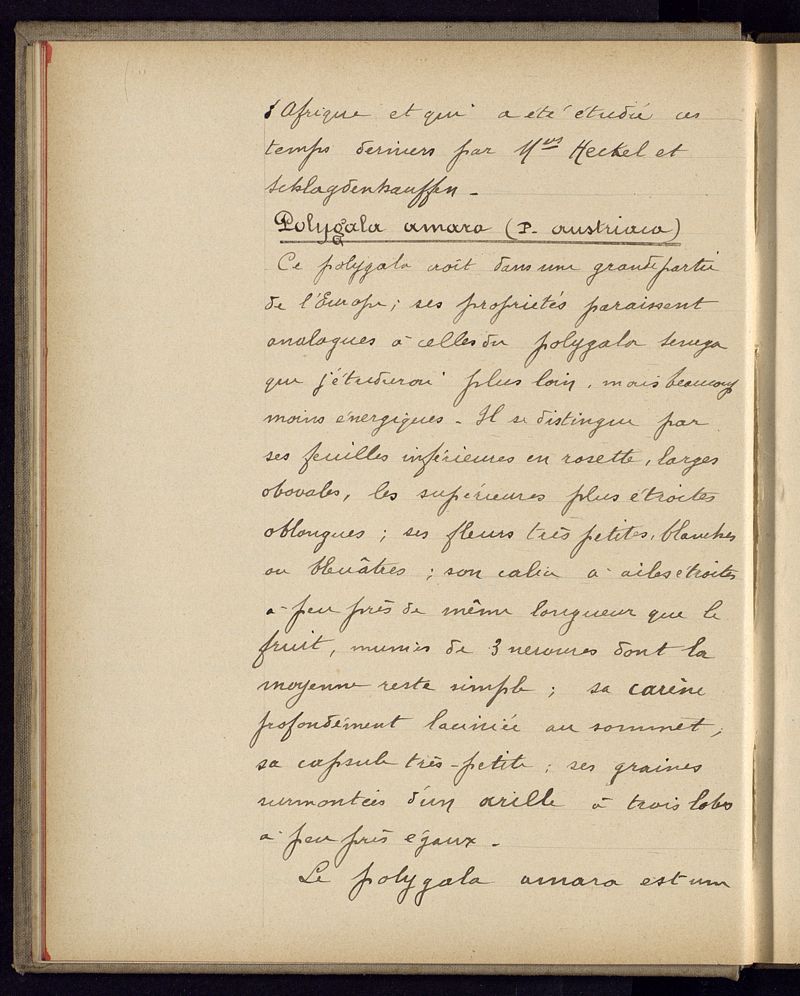 d'Afrique et qui a été étudié ces
temps derniers par Mrs Heckel et
Schlagdenhauffen -
Polygala amara (P. austriaca)
Ce polygala croît dans une grande partie
de l'Europe ; ses propriétés paraissent
analogues à celles du polygala senega
que j'étudierai plus loin, mais beaucoup
moins énergiques - Il se distingue par
ses feuilles inférieures en rosette, larges
obovales, les supérieures plus étroites
oblongues ; ses fleurs très petites, blanches
ou bleuâtres ; son calice à ailes étroites
à peu près de même longueur que le
fruit, munies de 3 nervures dont la
moyenne reste simple ; sa carène
profondément laciniée au sommet,
sa capsule très-petite ; ses graines
surmontées d'un arille à trois lobes
à peu près égaux -
Le polygala amara est une